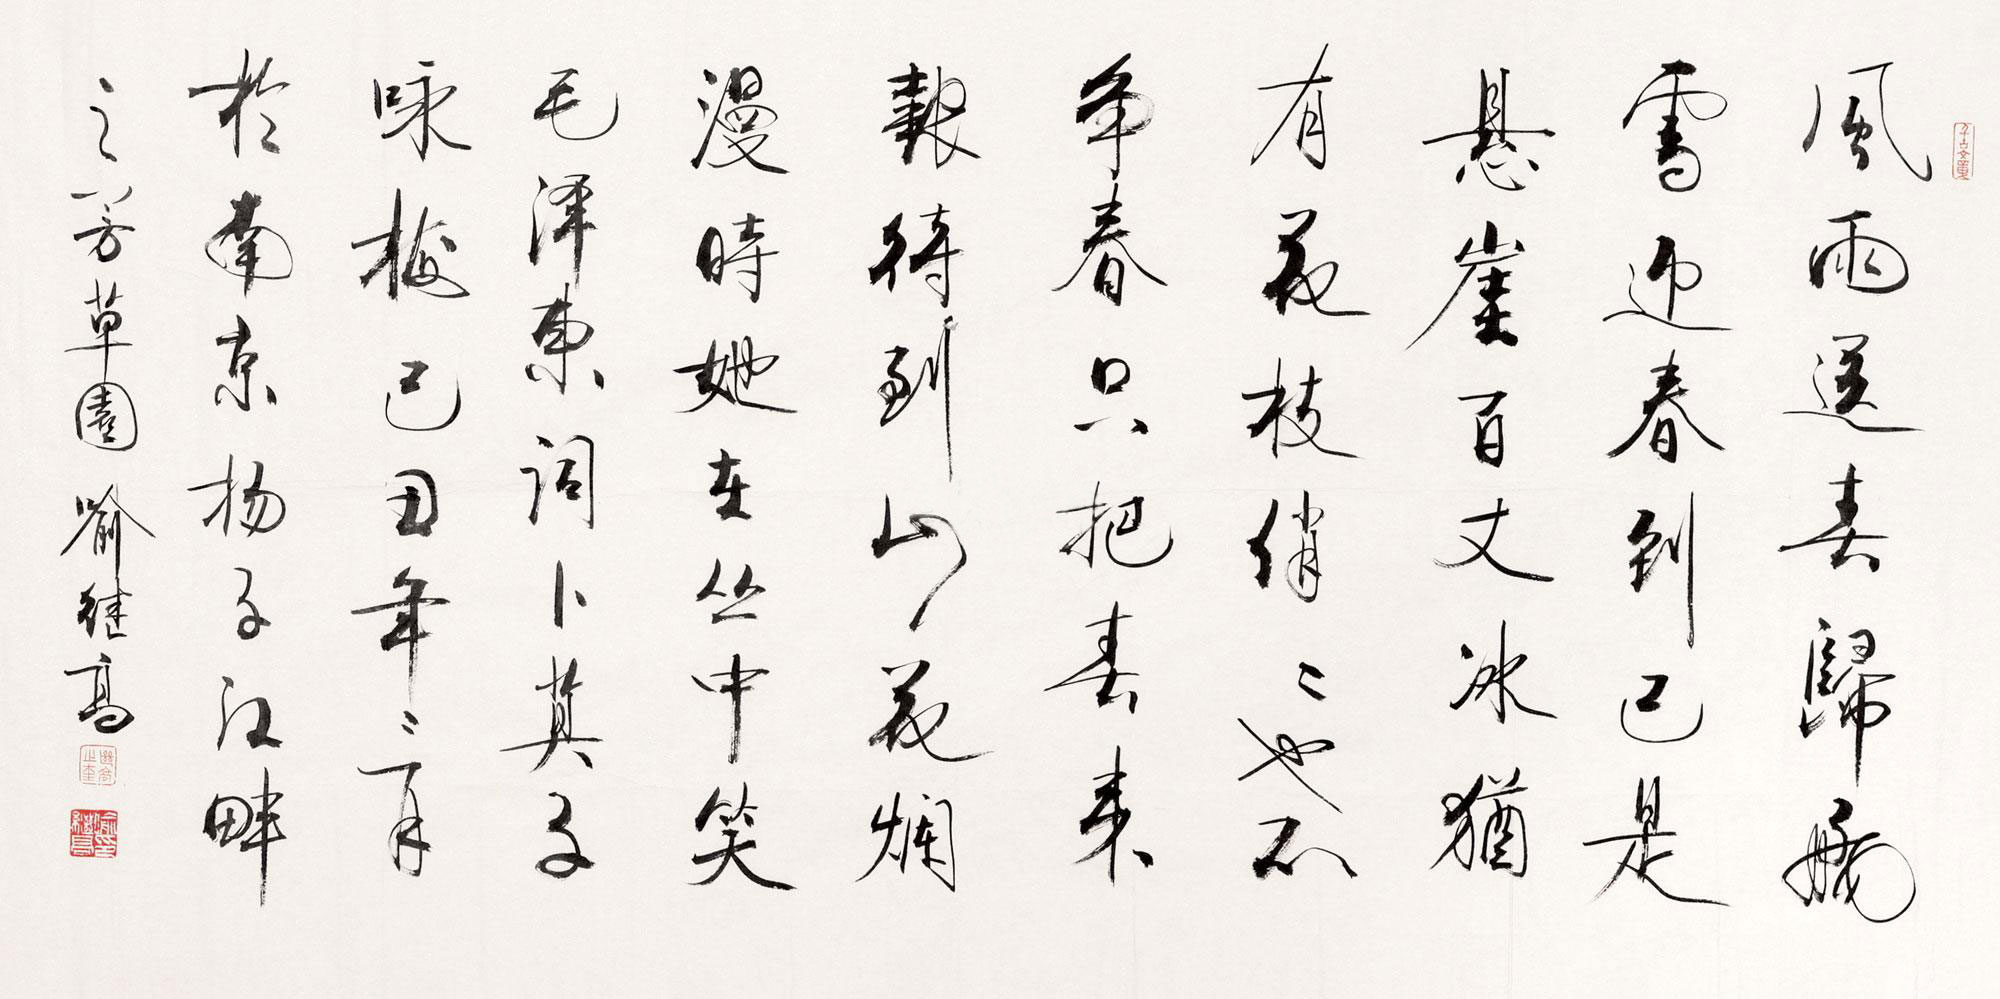 風雨送春歸飛
雪迎春到已是
悬崖百丈冰猶
有花枝俏〻也不
争春只把春来
報待到山花爛
漫時她在丛中笑
毛泽東词卜算子
咏梅己丑年二月
於南京扬子江畔
之芳草園 喻继高